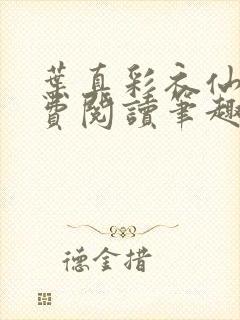 葉真彩衣仙
費閱讀筆趣
德金措